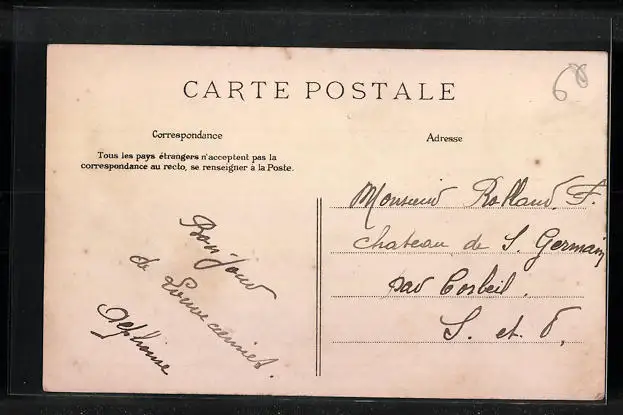 CARTE POSTALE
60
Correspondance
Tous les pays étrangers n'acceptent pas la
correspondance au recto, se renseigner à la Poste.
Bonjour
de Louveciennes.
Alphonse
Adresse
Monsieur Rolland. F.
chateau de S. Germain
par Corbeil.
S. et O,